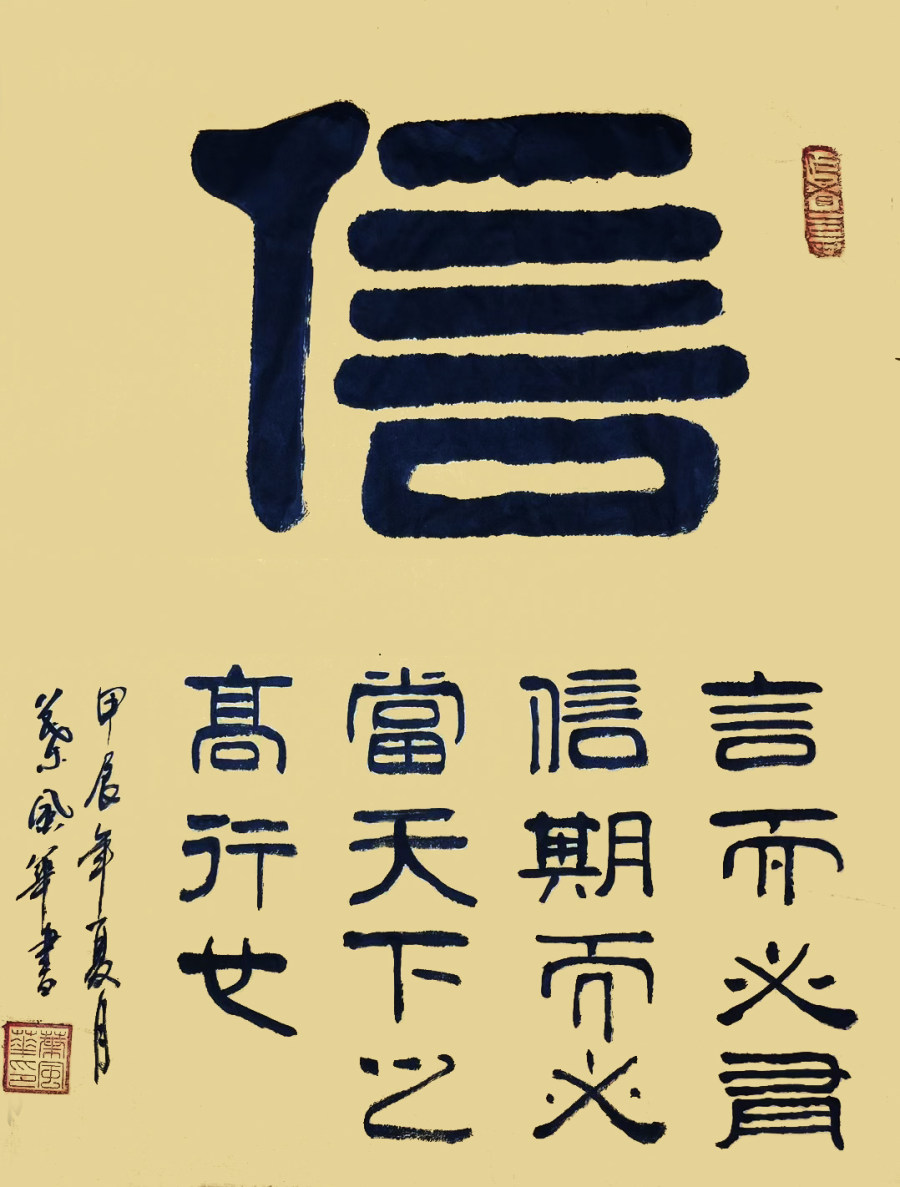 信
言而必有
信期而必
當天下之
髙行也
甲辰年夏月
葉風華書